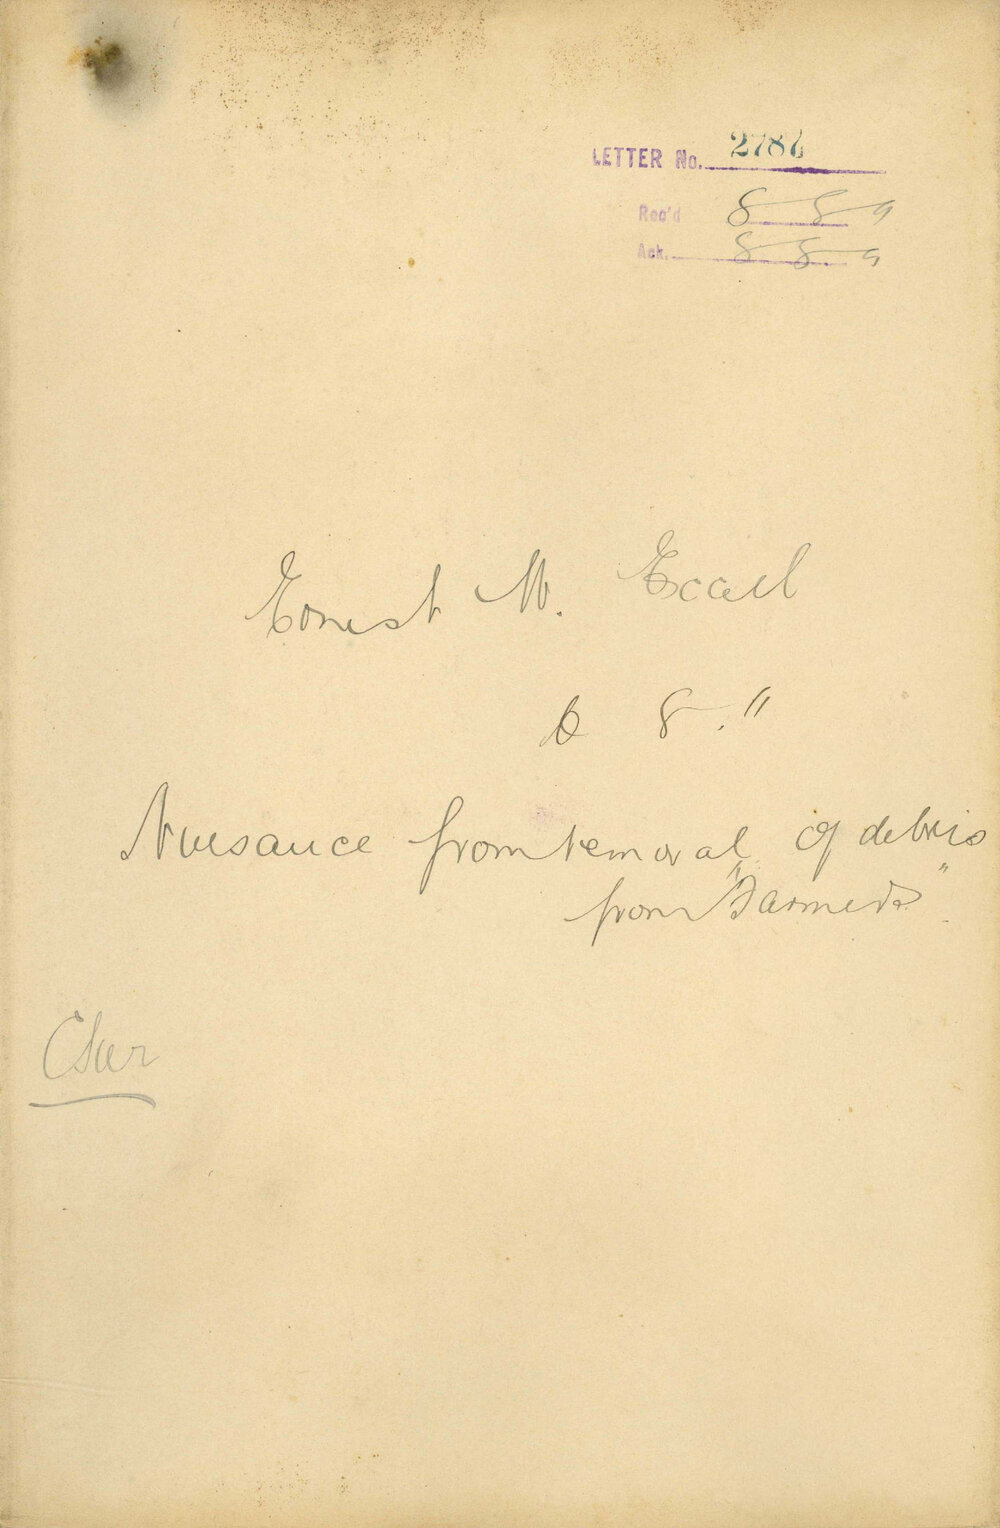 LETTER No. 2786
Rec'd 8 8 9
Ack. 8 8 9
Ernest W.
6 8 "
Nuisance from removal of debris
from "Farmers"